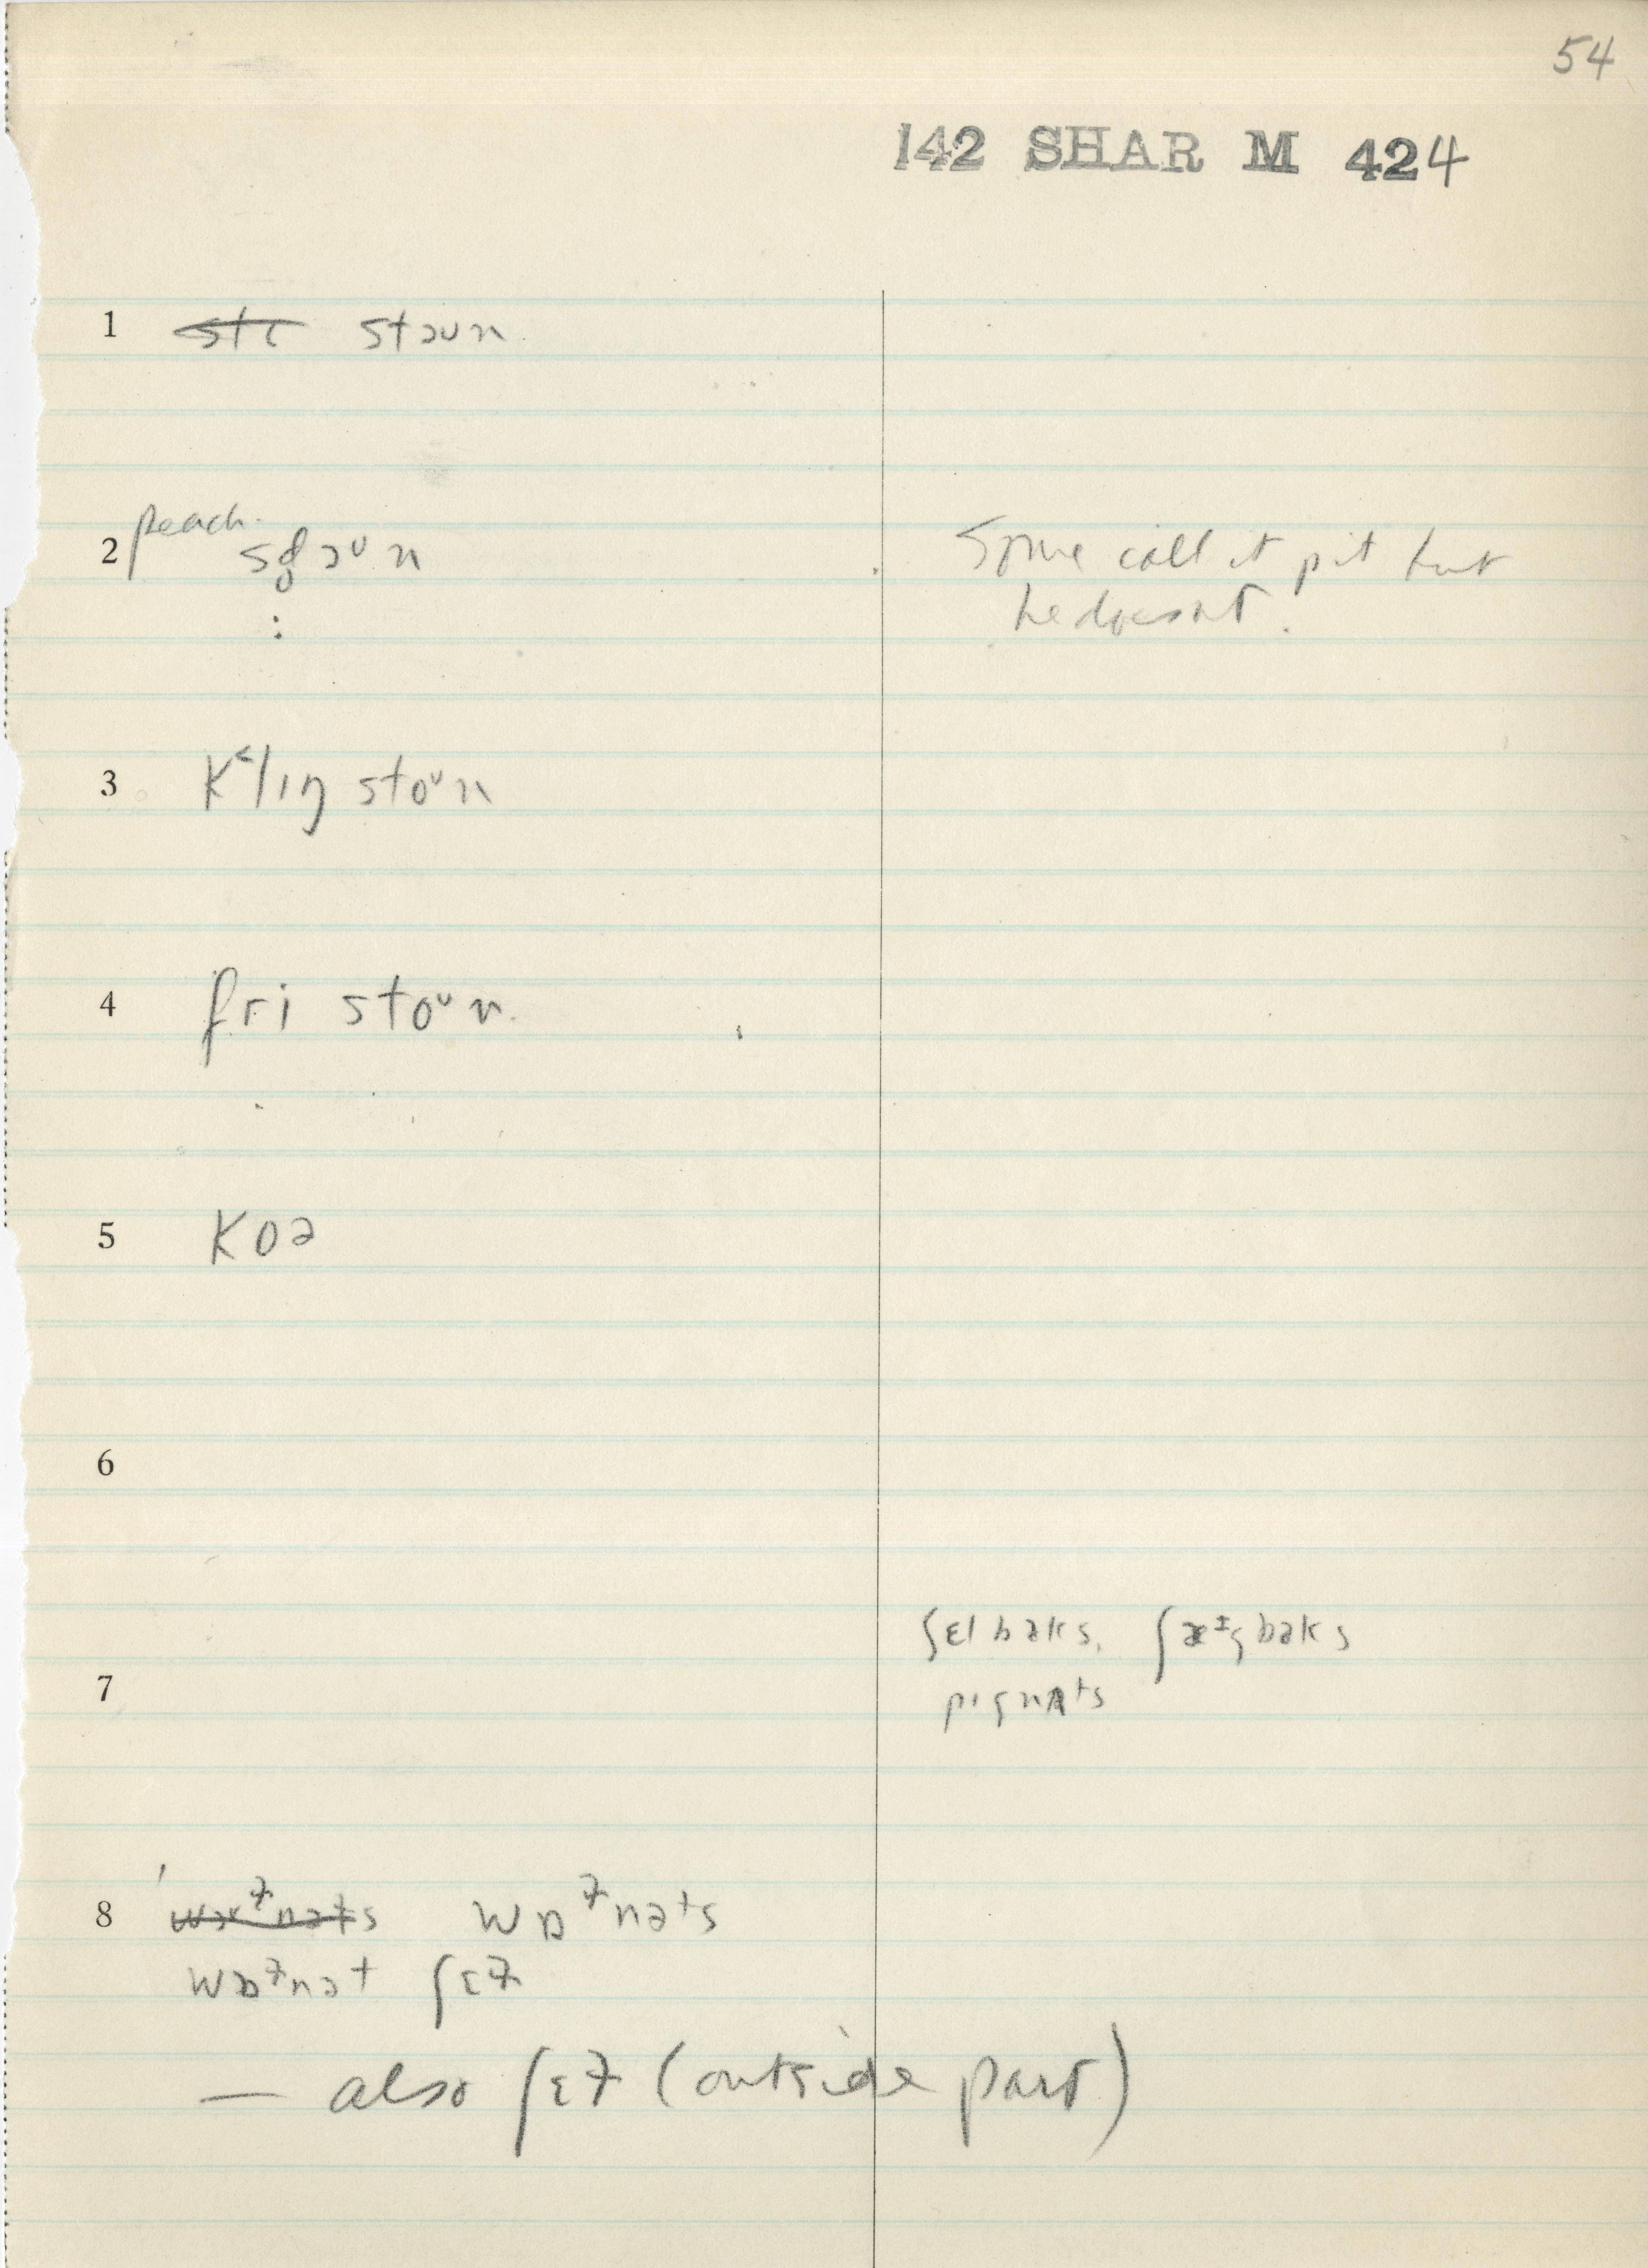 54
142 SHAR M 424
1 ~~stɛ~~ stɔun
2 peach. sd̥ɔᴜn Some call it pit but
: he doesnt.
3 k˂lɪŋ stoᴜn
4 fri stoᴜn
5 koə
6
ʃɛl bəks, ʃæᶤgbəks
7 pɪgnʌts
8 ~~wɔɫnəts~~ wɒɫnəts
wɒɫnət ʃɛɫ
— also ʃɛɫ (outside part)